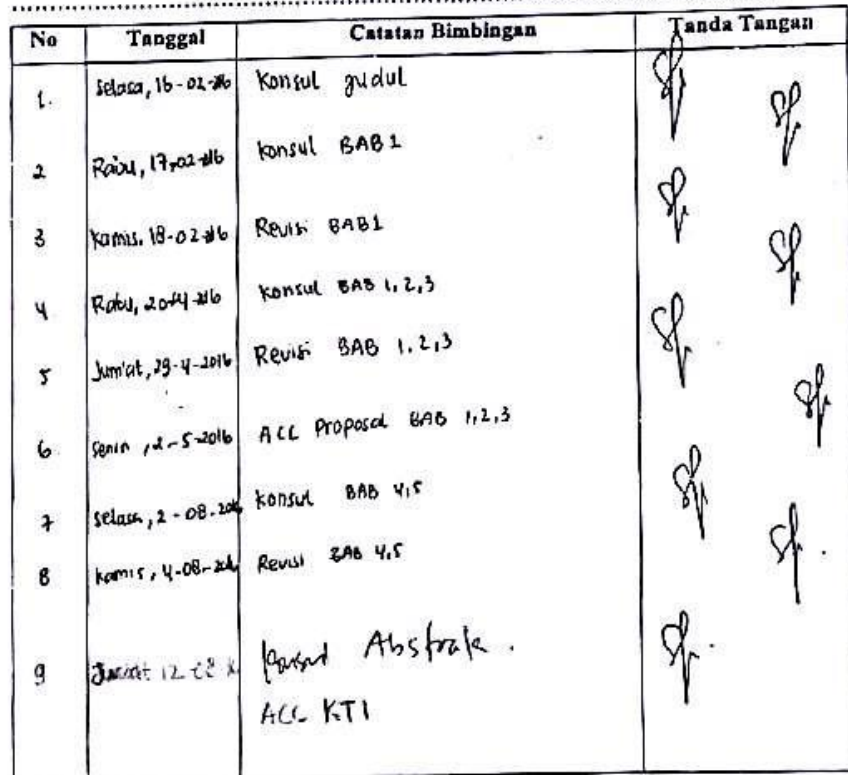 No Tanggal Catatan Bimbingan Tanda Tangan
1. Selasa, 16-02-2016 Konsul Judul
2 Rabu, 17-02-2016 Konsul BAB 1
3 Kamis, 18-02-2016 Revisi BAB 1
4 Rabu, 20-04-2016 Konsul BAB 1,2,3
5 Jum'at, 29-4-2016 Revisi BAB 1,2,3
6 Senin, 2-5-2016 ACC Proposal BAB 1,2,3
7 Selasa, 2-08-2016 Konsul BAB 4,5
8 Kamis, 4-08-2016 Revisi BAB 4,5
9 Jum'at 12 Abstrak.
ACC KTI